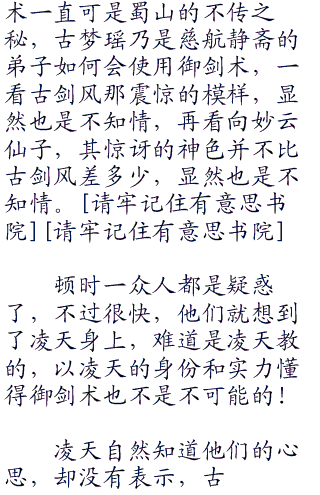 术一直可是蜀山的不传之
秘，古梦瑶乃是慈航静斋的
弟子如何会使用御剑术，一
看古剑风那震惊的模样，显
然也是不知情，再看向妙云
仙子，其惊讶的神色并不比
古剑风差多少，显然也是不
知情。[请牢记住有意思书
院][请牢记住有意思书院]
顿时一众人都是疑惑
了，不过很快，他们就想到
了凌天身上，难道是凌天教
的，以凌天的身份和实力懂
得御剑术也不是不可能的！
凌天自然知道他们的心
思，却没有表示，古